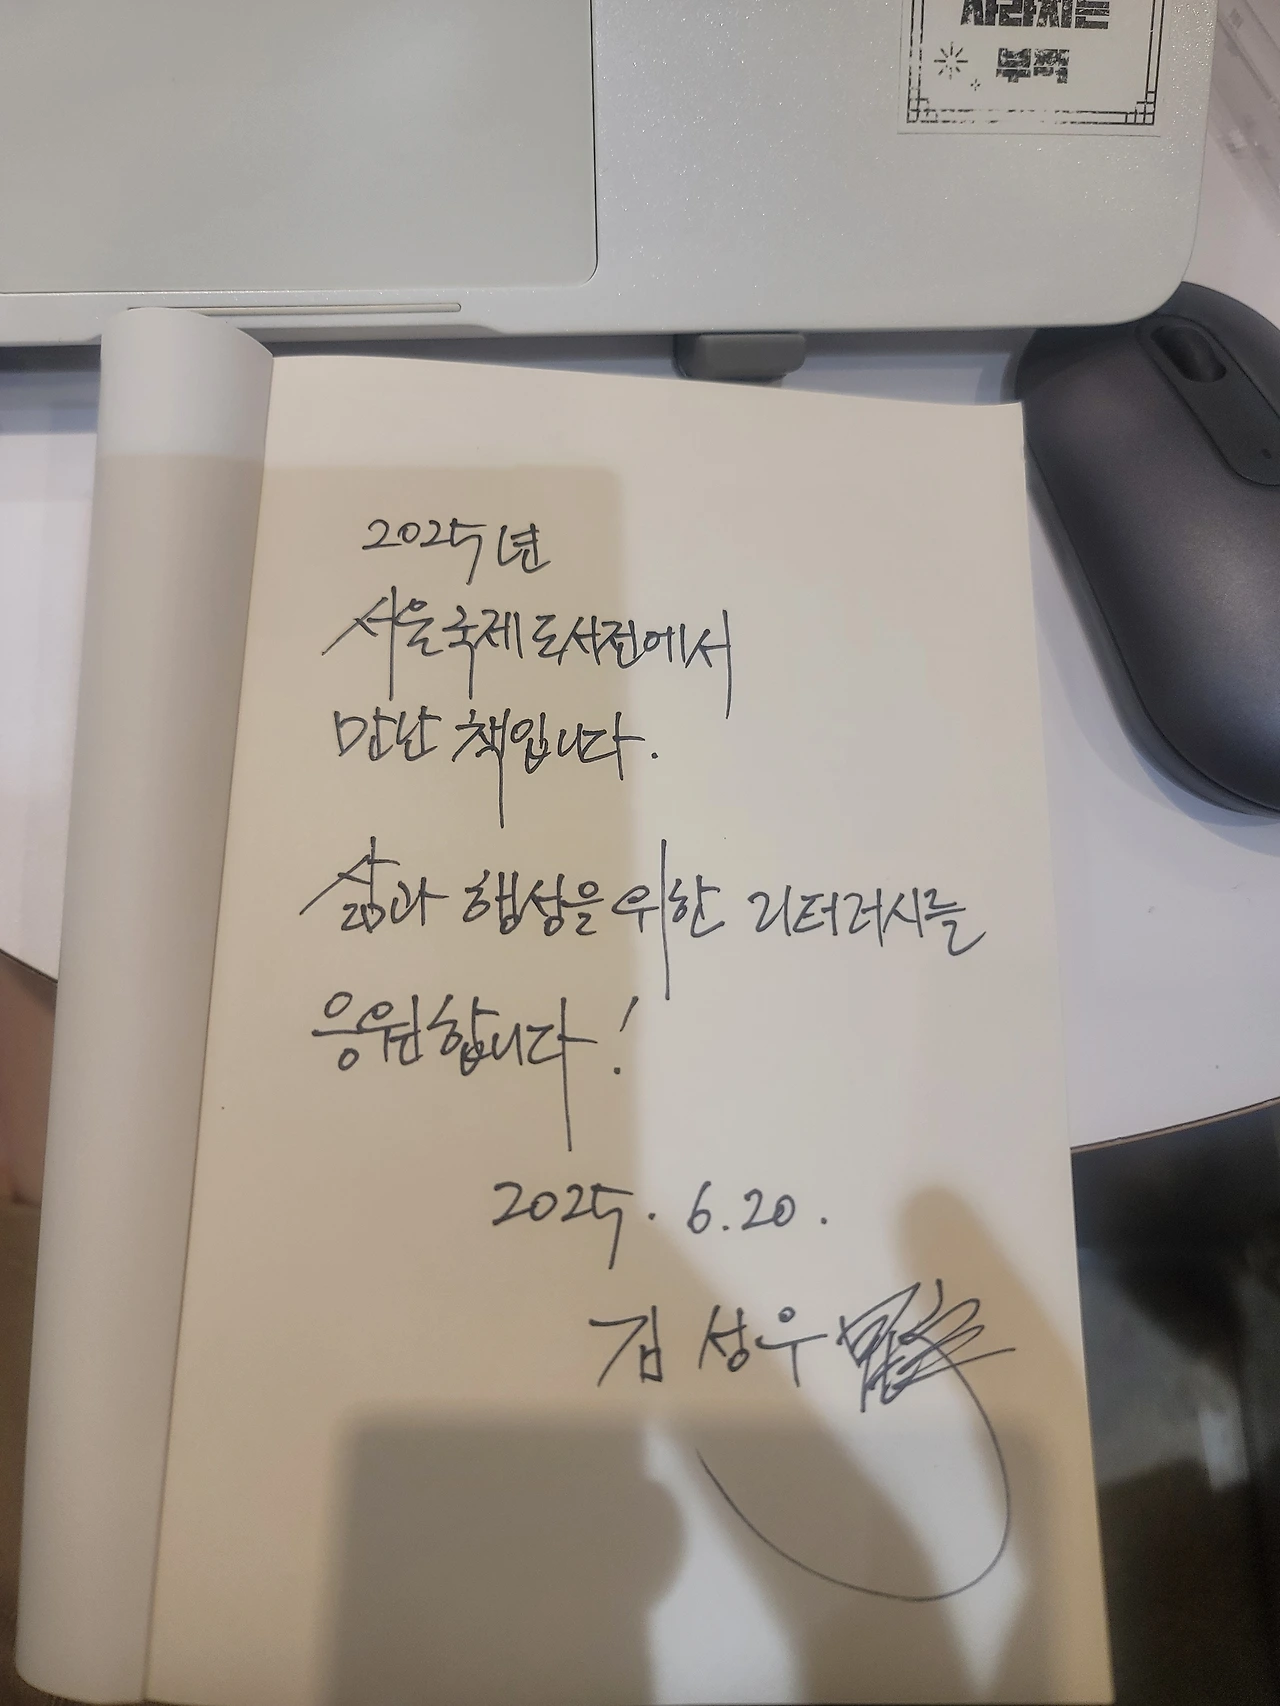 사라지는
부적
2025년
서울국제도서전에서
만난 책입니다.
삶과 행성을 위한 리터러시를
응원합니다!
2025. 6. 20.
김성우